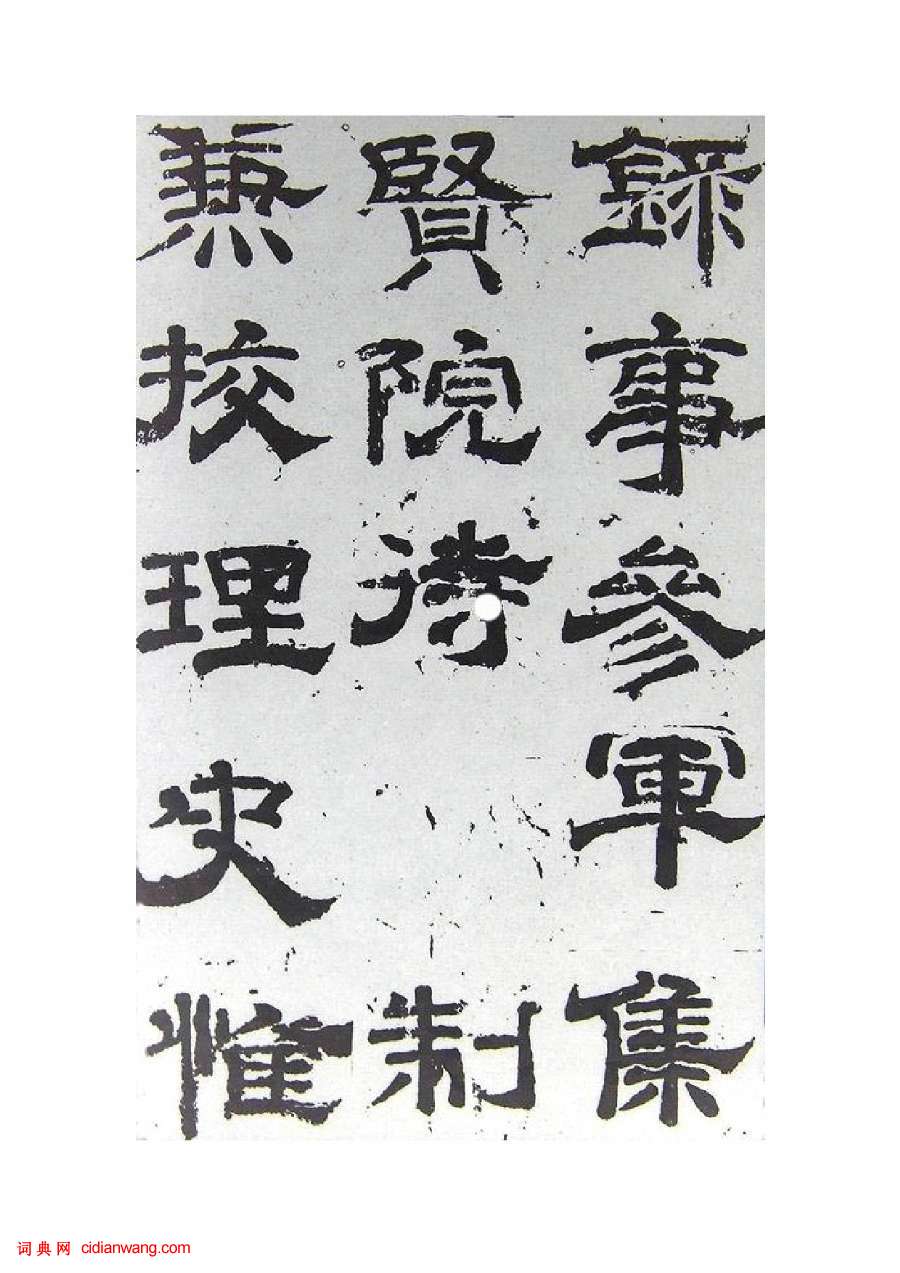 錄事參軍集
賢院待制
兼挍理史惟
词典网 cidianwang.com